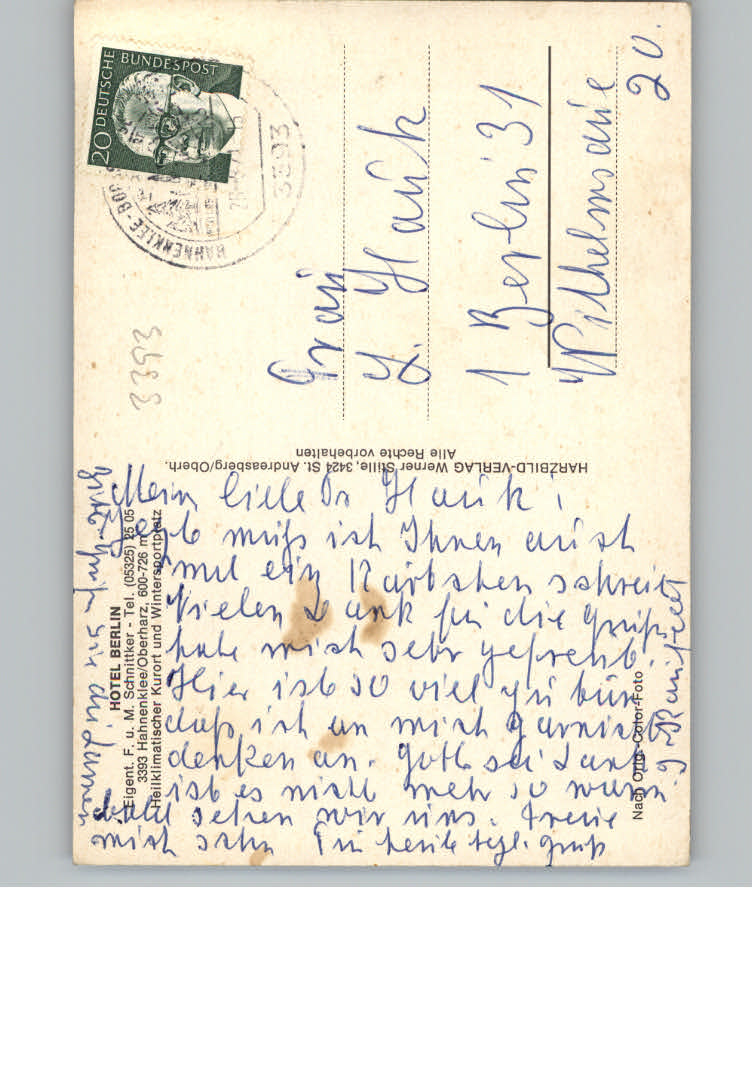 DEUTSCHE BUNDESPOST
20
HAHNENKLEE-BOCK
3393
Frau
Hauk
1 Berlin 31
Wilhelmsaue
20.
3393
HARZBILD-VERLAG Werner Stille, 3424 St. Andreasberg/Oberh.
Alle Rechte vorbehalten
HOTEL BERLIN
Eigent. F. u. M. Schnittker - Tel. (05325) 25 05
3393 Hahnenklee/Oberharz, 600-726 m
Heilklimatischer Kurort und Wintersportplatz
Nach Orig.-Color-Foto
Mein liebe Hauk!
muß ich Ihnen auch
mal ein Kärtchen schreib
Vielen Dank für die Grüße
habe mich sehr gefreut.
Hier ist so viel zu tun
daß ich an mich garnicht
denken an. Gott sei Dank
ist es nicht mehr so warm.
bald sehen wir uns. Freue
mich schon Für heute Gruß